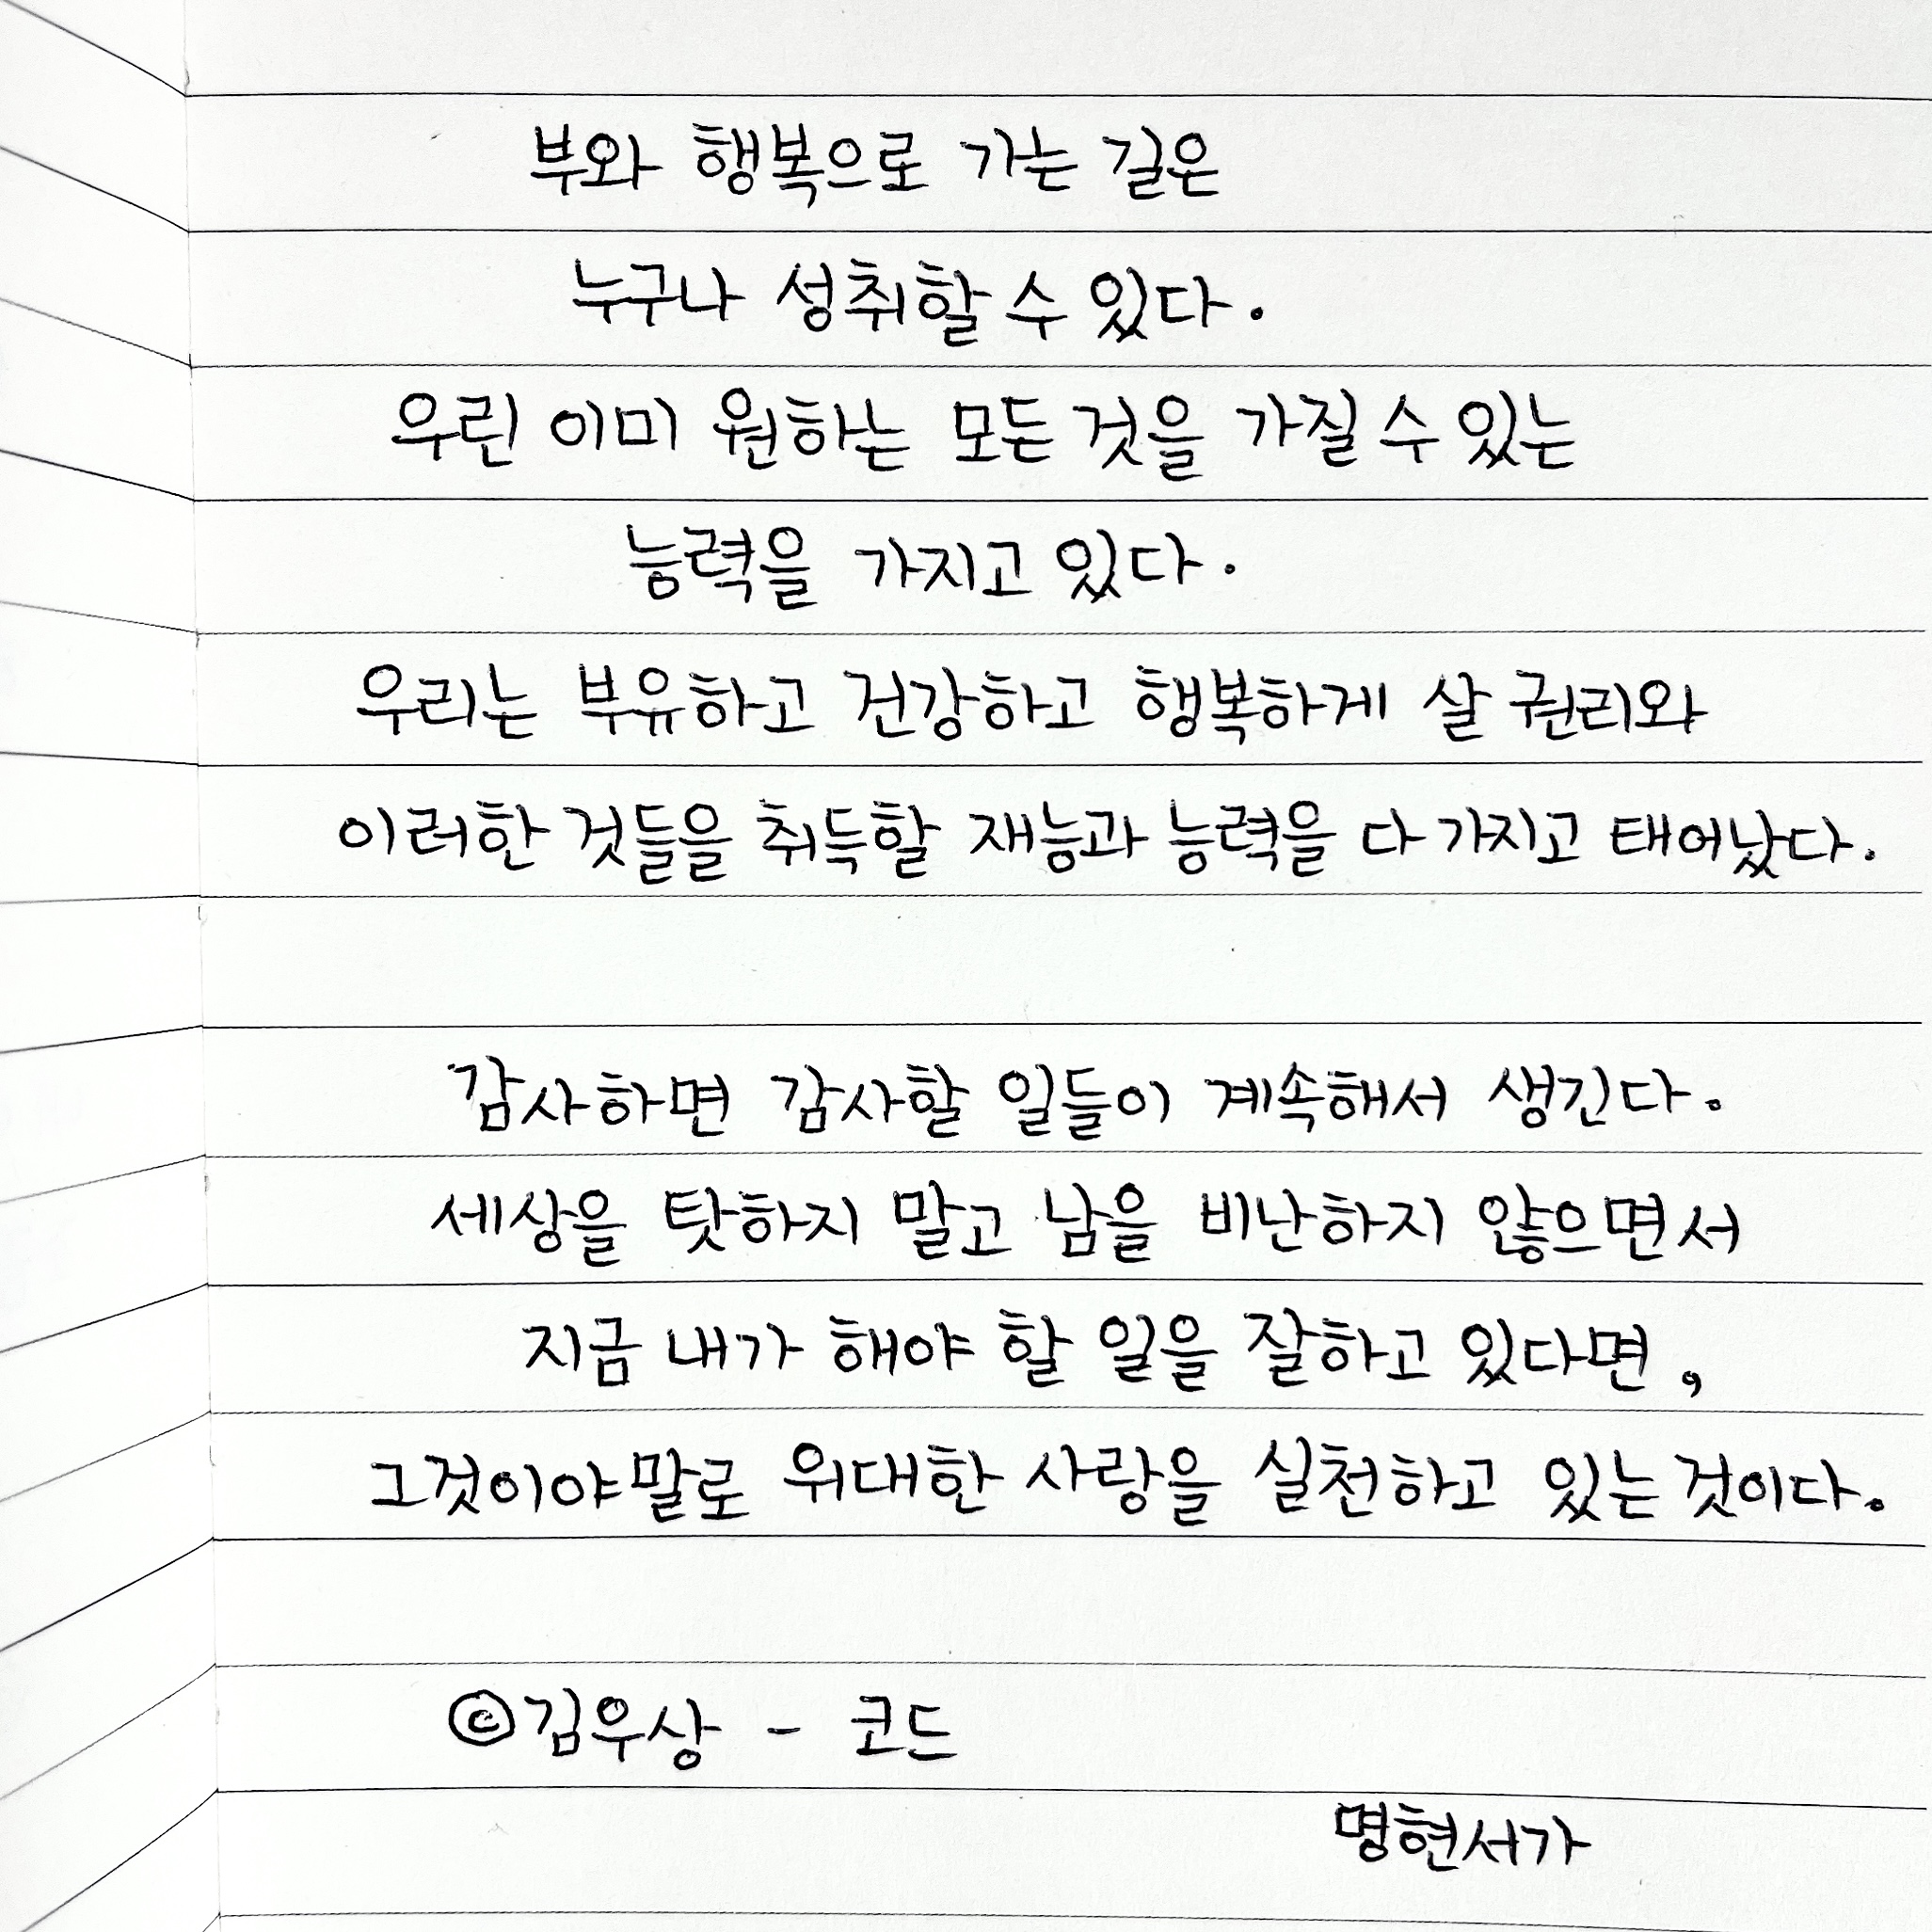 부와 행복으로 가는 길은
누구나 성취할 수 있다.
우린 이미 원하는 모든 것을 가질 수 있는
능력을 가지고 있다.
우리는 부유하고 건강하고 행복하게 살 권리와
이러한 것들을 취득할 재능과 능력을 다 가지고 태어났다.
감사하면 감사할 일들이 계속해서 생긴다.
세상을 탓하지 말고 남을 비난하지 않으면서
지금 내가 해야 할 일을 잘하고 있다면,
그것이야말로 위대한 사랑을 실천하고 있는 것이다.
©김우상 - 코드
명현서가